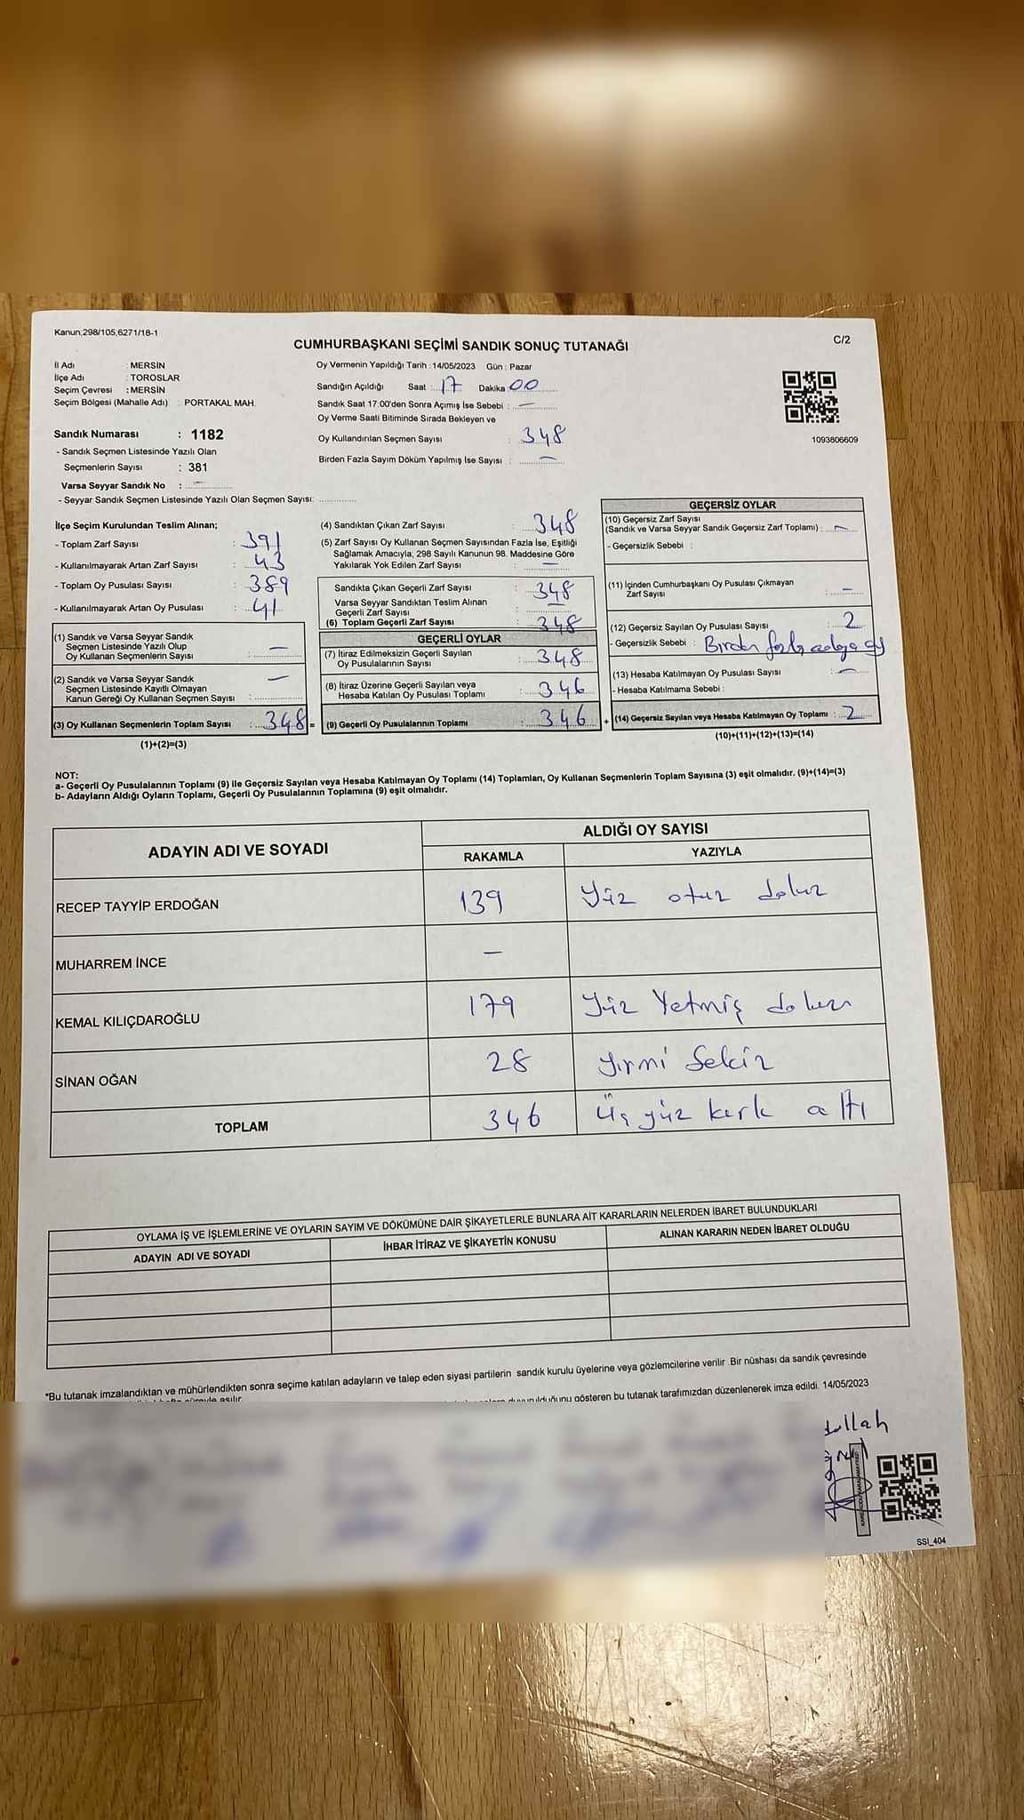 Kanun:298/105,6271/18-1
CUMHURBAŞKANI SEÇİMİ SANDIK SONUÇ TUTANAĞI
C/2
İl Adı : MERSİN
İlçe Adı : TOROSLAR
Seçim Çevresi : MERSİN
Seçim Bölgesi (Mahalle Adı) : PORTAKAL MAH.
Sandık Numarası : 1182
- Sandık Seçmen Listesinde Yazılı Olan
Seçmenlerin Sayısı : 381
Varsa Seyyar Sandık No : -
- Seyyar Sandık Seçmen Listesinde Yazılı Olan Seçmen Sayısı:
Oy Vermenin Yapıldığı Tarih : 14/05/2023 Gün : Pazar
Sandığın Açıldığı Saat : 17 Dakika 00
Sandık Saat 17:00'den Sonra Açımış İse Sebebi : -
Oy Verme Saati Bitiminde Sırada Bekleyen ve
Oy Kullandırılan Seçmen Sayısı : 348
Birden Fazla Sayım Döküm Yapılmış İse Sayısı : -
1093806609
İlçe Seçim Kurulundan Teslim Alınan;
- Toplam Zarf Sayısı : 391
- Kullanılmayarak Artan Zarf Sayısı : 43
- Toplam Oy Pusulası Sayısı : 389
- Kullanılmayarak Artan Oy Pusulası : 41
(1) Sandık ve Varsa Seyyar Sandık
Seçmen Listesinde Yazılı Olup
Oy Kullanan Seçmenlerin Sayısı : -
(2) Sandık ve Varsa Seyyar Sandık
Seçmen Listesinde Kayıtlı Olmayan
Kanun Gereği Oy Kullanan Seçmen Sayısı : -
(3) Oy Kullanan Seçmenlerin Toplam Sayısı : 348 =
(1)+(2)=(3)
(4) Sandıktan Çıkan Zarf Sayısı : 348
(5) Zarf Sayısı Oy Kullanan Seçmen Sayısından Fazla İse, Eşitliği
Sağlamak Amacıyla, 298 Sayılı Kanunun 98. Maddesine Göre
Yakılarak Yok Edilen Zarf Sayısı : -
Sandıkta Çıkan Geçerli Zarf Sayısı : 348
Varsa Seyyar Sandıktan Teslim Alınan
Geçerli Zarf Sayısı : -
(6) Toplam Geçerli Zarf Sayısı : 348
GEÇERLİ OYLAR
(7) İtiraz Edilmeksizin Geçerli Sayılan
Oy Pusulalarının Sayısı : 348
(8) İtiraz Üzerine Geçerli Sayılan veya
Hesaba Katılan Oy Pusulası Toplamı : 346
(9) Geçerli Oy Pusulalarının Toplamı : 346 +
GEÇERSİZ OYLAR
(10) Geçersiz Zarf Sayısı
(Sandık ve Varsa Seyyar Sandık Geçersiz Zarf Toplamı) : -
- Geçersizlik Sebebi :
(11) İçinden Cumhurbaşkanı Oy Pusulası Çıkmayan
Zarf Sayısı : -
(12) Geçersiz Sayılan Oy Pusulası Sayısı : 2
- Geçersizlik Sebebi : Birden fazla adaya oy
(13) Hesaba Katılmayan Oy Pusulası Sayısı : -
- Hesaba Katılmama Sebebi :
(14) Geçersiz Sayılan veya Hesaba Katılmayan Oy Toplamı : 2
(10)+(11)+(12)+(13)=(14)
NOT:
a- Geçerli Oy Pusulalarının Toplamı (9) ile Geçersiz Sayılan veya Hesaba Katılmayan Oy Toplamı (14) Toplamları, Oy Kullanan Seçmenlerin Toplam Sayısına (3) eşit olmalıdır. (9)+(14)=(3)
b- Adayların Aldığı Oyların Toplamı, Geçerli Oy Pusulalarının Toplamına (9) eşit olmalıdır.
ADAYIN ADI VE SOYADI
ALDIĞI OY SAYISI
RAKAMLA YAZIYLA
RECEP TAYYİP ERDOĞAN 139 Yüz otuz dokuz
MUHARREM İNCE -
KEMAL KILIÇDAROĞLU 179 Yüz Yetmiş dokuz
SİNAN OĞAN 28 Yirmi Sekiz
TOPLAM 346 Üç yüz kırk altı
OYLAMA İŞ VE İŞLEMLERİNE VE OYLARIN SAYIM VE DÖKÜMÜNE DAİR ŞİKAYETLERLE BUNLARA AİT KARARLARIN NELERDEN İBARET BULUNDUKLARI
ADAYIN ADI VE SOYADI İHBAR İTİRAZ VE ŞİKAYETİN KONUSU ALINAN KARARIN NEDEN İBARET OLDUĞU
*Bu tutanak imzalandıktan ve mühürlendikten sonra seçime katılan adayların ve talep eden siyasi partilerin sandık kurulu üyelerine veya gözlemcilerine verilir. Bir nüshası da sandık çevresinde
asılır.
gösteren bu tutanak tarafımızdan düzenlenerek imza edildi. 14/05/2023
SSI_404